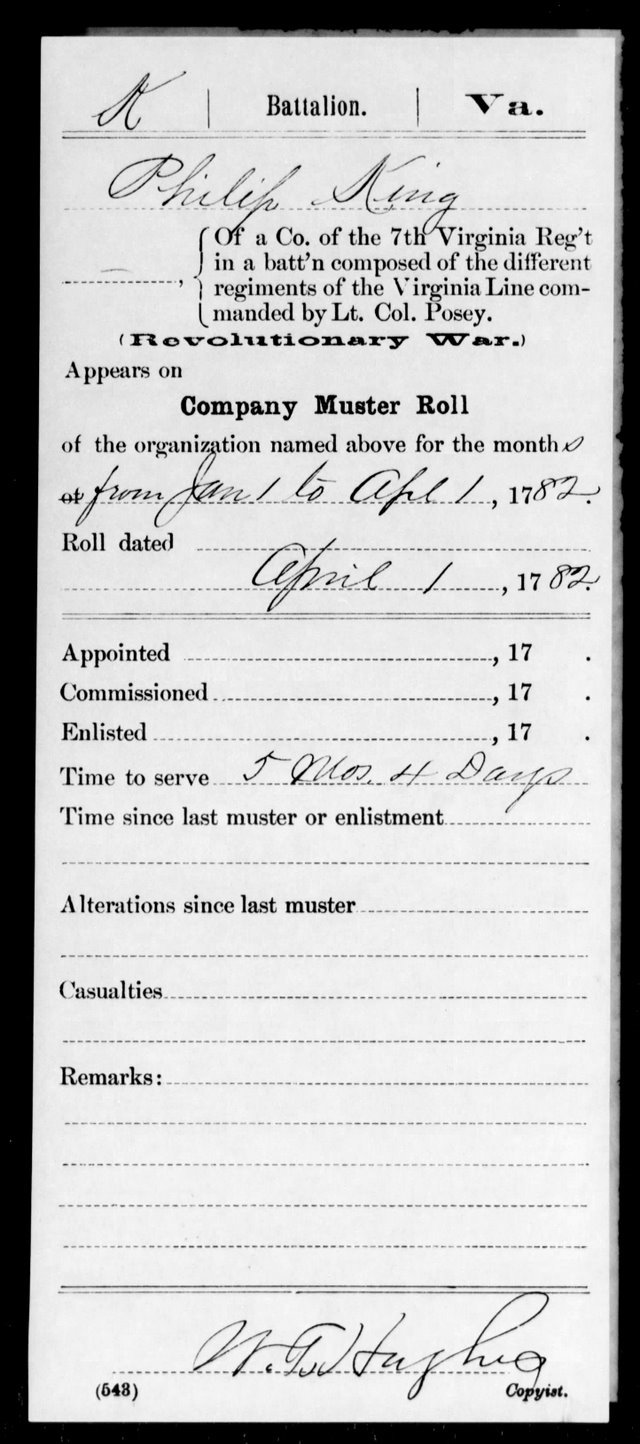 K | Battalion. | Va.
Philip King
Of a Co. of the 7th Virginia Reg't
in a batt'n composed of the different
regiments of the Virginia Line com-
manded by Lt. Col. Posey.
(Revolutionary War.)
Appears on
Company Muster Roll
of the organization named above for the months
of from Jan 1 to Apl 1, 1782.
Roll dated
April 1, 1782.
Appointed , 17 .
Commissioned , 17 .
Enlisted , 17 .
Time to serve 5 Mos. 4 Days
Time since last muster or enlistment
Alterations since last muster
Casualties
Remarks:
W. T. Hughes
(543) Copyist.